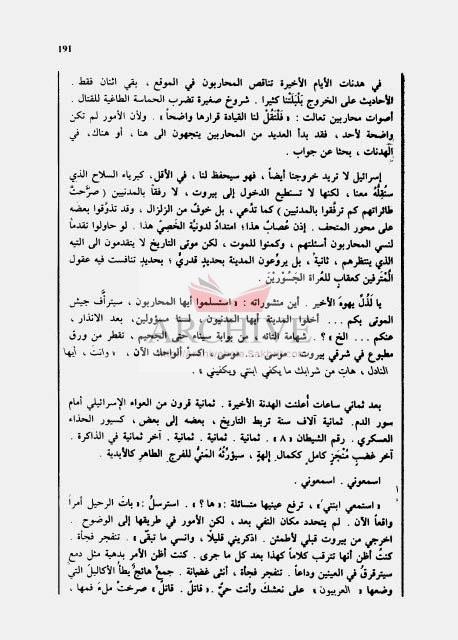 191
في هدنات الأيام الأخيرة تناقص المحاربون في الموقع ، بقي اثنان فقط .
الأحاديث على الخروج بَلْبَلَتْنا كثيرا . شروخ صغيرة تضرب الحماسة الطاغية للقتال .
أصوات محاربين تعالت : « فَلْتَقُلْ لنا القيادة قرارها واضحاً » . ولأن الأمور لم تكن
واضحة لأحد ، فقد بدأ العديد من المحاربين يتجهون الى هنا ، أو هناك، في
الهدنات ، بحثا عن جواب .
إسرائيل لا تريد خروجنا أيضاً ، فهو سيحفظ لنا ، في الأقل، كبرياء السلاح الذي
سنُقِلُّهُ معنا ، لكنها لا تستطيع الدخول إلى بيروت ، لا رفقاً بالمدنيين ( صرَّحت
طائراتهم كم ترفَّقوا بالمدنيين ) كما تدَّعي ، بل خوفٌ من الزلزال ، وقد تذوَّقوا بعضه
على محور المتحف . إذن عُصابٌ هذا؛ امتدادٌ لدونيَّة الخَصِيّ هذا . لو حاولوا تقدماً
لنسي المحاربون أسئلتهم ، وكمنوا للموت ، لكن موتى التاريخ لا يتقدمون الى التيه
الذي ينتظرهم ، ثانيةً ، بل يروِّعون المدينة بحديدٍ قدريٍّ ؛ بحديدٍ تنافست فيه عقول
المُتْرفين كعقابٍ للعُراة الجَسُورِيْنَ .
يا لَذُلّ يهوه الأخير . أين منشوراته : « استسلموا أيها المحاربون ، سيترأّف جيش
الموتى بكم ... أخلوا المدينة أيها المدنيون ، لسنا مسؤولين، بعد الانذار ،
عنكم ... الخ » ؟ . شهامة التائه ، من بوابة سيناء حتى الجحيم ، تقطر من ورق
مطبوع في شرقي بيروت . موسى . موسى . اكسرْ ألواحك الآن . « وأنت ، أيها
النادل ، هاتِ من شرابك ما يكفي ابنتي ويكفيني » .
ARCHIVE
بعد ثماني ساعات أُعلنت الهدنة الأخيرة . ثمانية قرون من العواء الإسرائيلي أمام
سور الدم. ثمانية آلاف سنة تربط التاريخ ، بعضه إلى بعض ، كسيور الحذاء
العسكري . رقم الشيطان « ٨ » . ثمانية . ثمانية . ثمانية . آخر ثمانية في الذاكرة .
آخر غضبٍ مُنْجَزٍ كاملٍ ككمال إلهةٍ ، سيؤرِّثُهُ المَنيُّ للفرج الطاهر كالأبدية .
اسمعوني . اسمعوني .
« استمعي ابنتي » ، ترفع عينيها متسائلة : « ها ؟ » . استرسلُ : « باتَ الرحيل أمراً
واقعاً الآن . لم يتحدد مكان النفي بعد ، لكن الأمور في طريقها إلى الوضوح .
اخرجي من بيروت قبلي لأطمئن . اذكريني قليلاً ، وانسي ما تبقّى » . تنفجر فجأة .
كنتُ أظن أنها تترقب كلاماً كهذا بعد كل ما جرى . كنت أظن الأمر بدهية مثل دمع
سيترقرقُ في العينين وداعاً . تنفجر فجأة ، أنثى غضبانة . جمعٌ هائجٌ يطأُ الأكاليلَ التي
وضعها « العربيون » على نعشك وأنت حيٌّ . « قاتلْ . قاتلْ » صرختْ ملءَ فمها ،